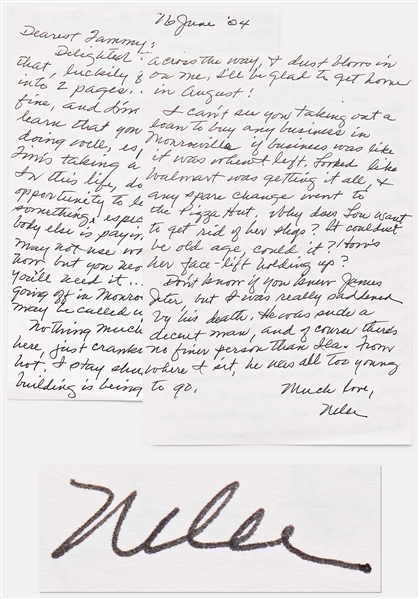 26 June '04
Dearest Tammy:
Delighted
that, luckily
into 2 pages.
fine, and
learn that you
doing well,
taking a
In this life, do
opportunity to
something, espec
body else is payin
may not use
now but you
you'll need it...
going off in Monro
may be called
Nothing much
here, just cranke
hot. I stay shu
building is being
across the way, & dust blows in
on me. I'll be glad to get home
in August!
I can't see you taking out a
loan to buy any business in
Monroeville if business was like
it was when I left. Looked like
Walmart was getting it all, &
any spare change went to
the Pizza Hut. Why does Lou want
to get rid of her shop? It couldn't
be old age, could it? How's
her face-lift holding up?
Don't know if you knew James
but I was really saddened
by his death. He was such a
decent man, and of course there's
no finer person than Ila. From
where I sit, he was all too young
to go.
Much love,
Nelle
Nelle